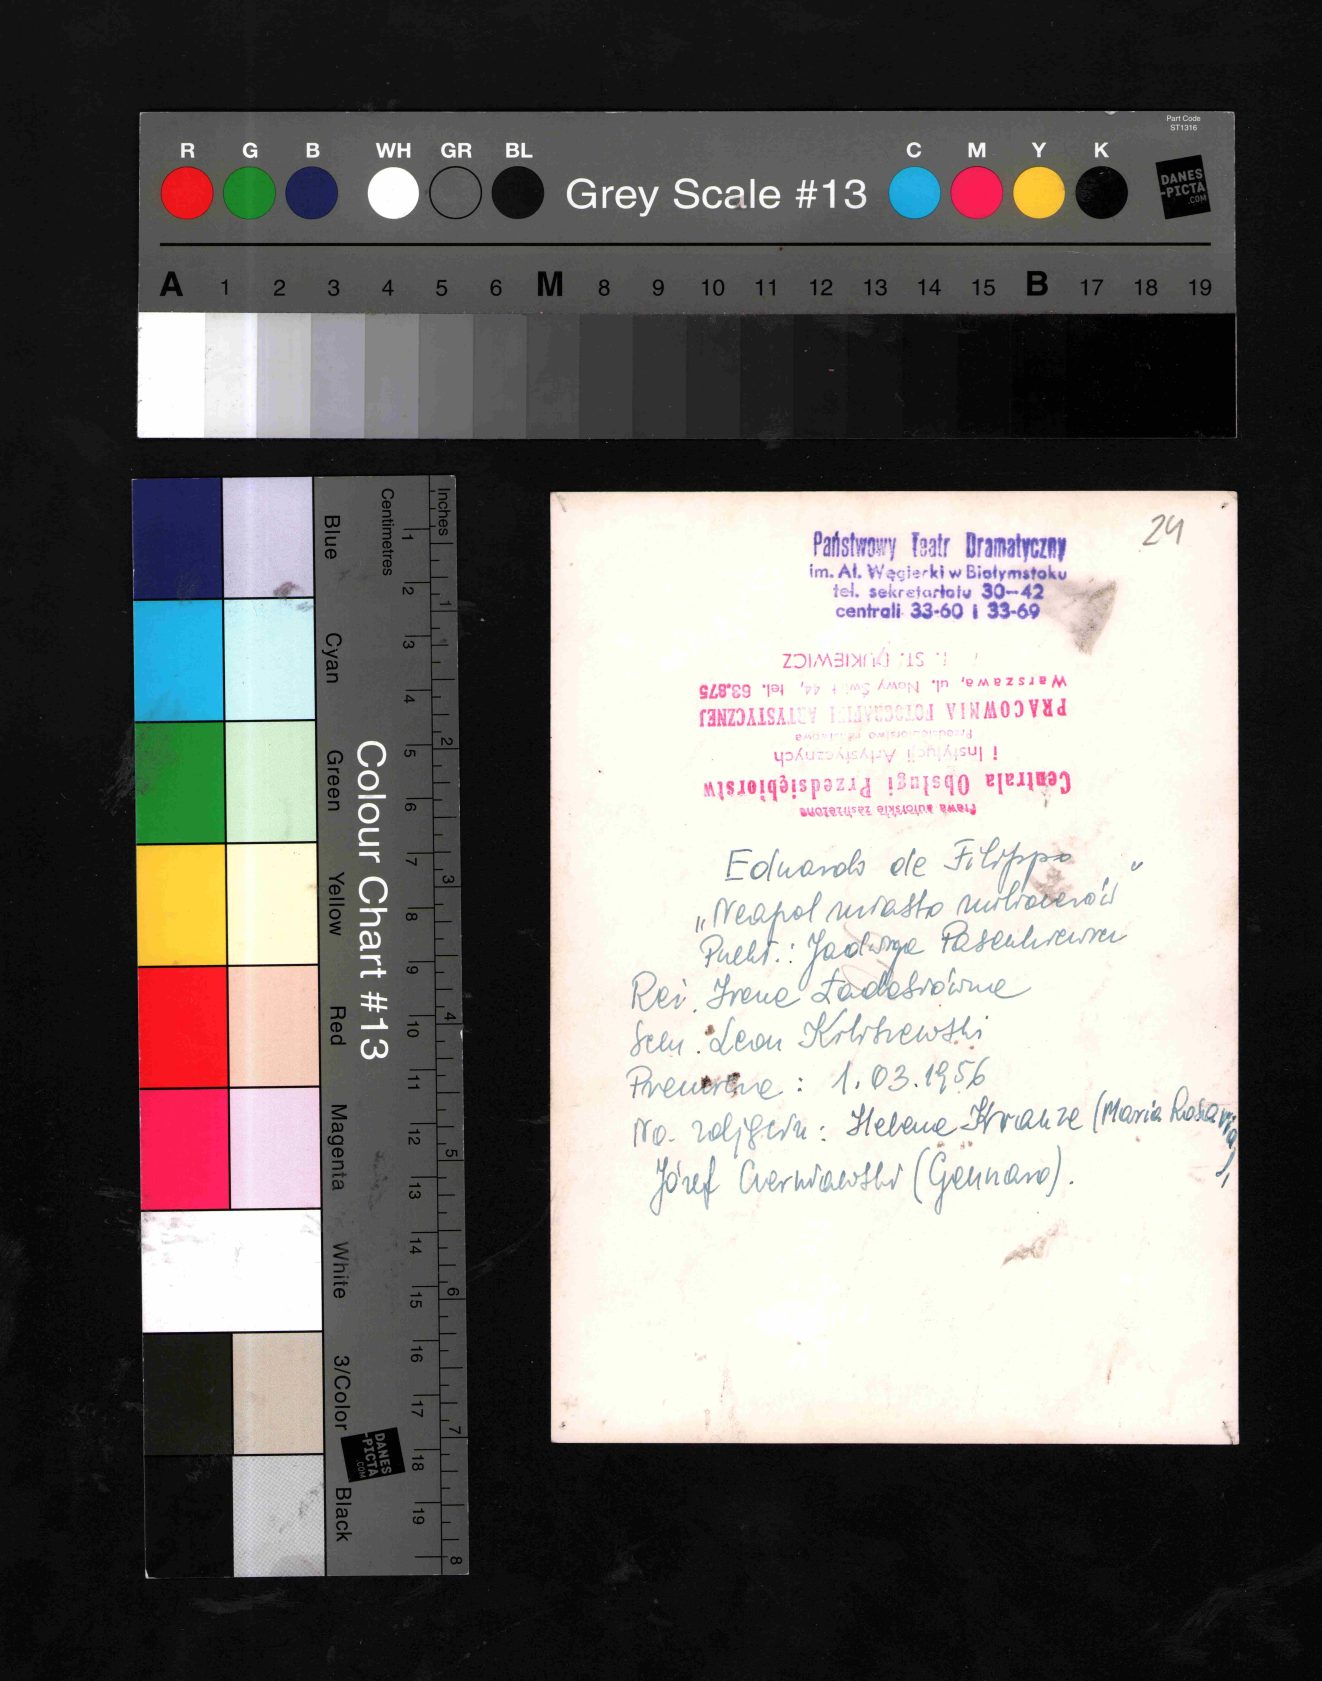 Part Code
ST1316
R G B WH GR BL Grey Scale #13 C M Y K
DANES
-PICTA
.COM
A 1 2 3 4 5 6 M 8 9 10 11 12 13 14 15 B 17 18 19
Colour Chart #13
Blue
Cyan
Green
Yellow
Red
Magenta
White
3/Color
Black
Centimetres
1 2 3 4 5 6 7 8 9 10 11 12 13 14 15 16 17 18 19
Inches
1 2 3 4 5 6 7 8
DANES
-PICTA
.COM
24
Państwowy Teatr Dramatyczny
im. Al. Węgierki w Białymstoku
tel. sekretariatu 30-42
centrali 33-60 i 33-69
Prawa autorskie zastrzeżone
Centrala Obsługi Przedsiębiorstw
i Instytucji Artystycznych
Przedsiębiorstwo
PRACOWNIA FOTOGRAFII ARTYSTYCZNEJ
Warszawa, ul. Nowy Świat 44, tel. 63.875
ST.
Eduardo de Filippo
„Neapol miasto milionerów"
: Jadwiga
Reż. Irena Ładosiówna
Scen. Leon
Premiera : 1.03.1956
Na zdjęciu: Helena Krauze (Maria Rosaria),
Józef Czerniawski (Gennaro).